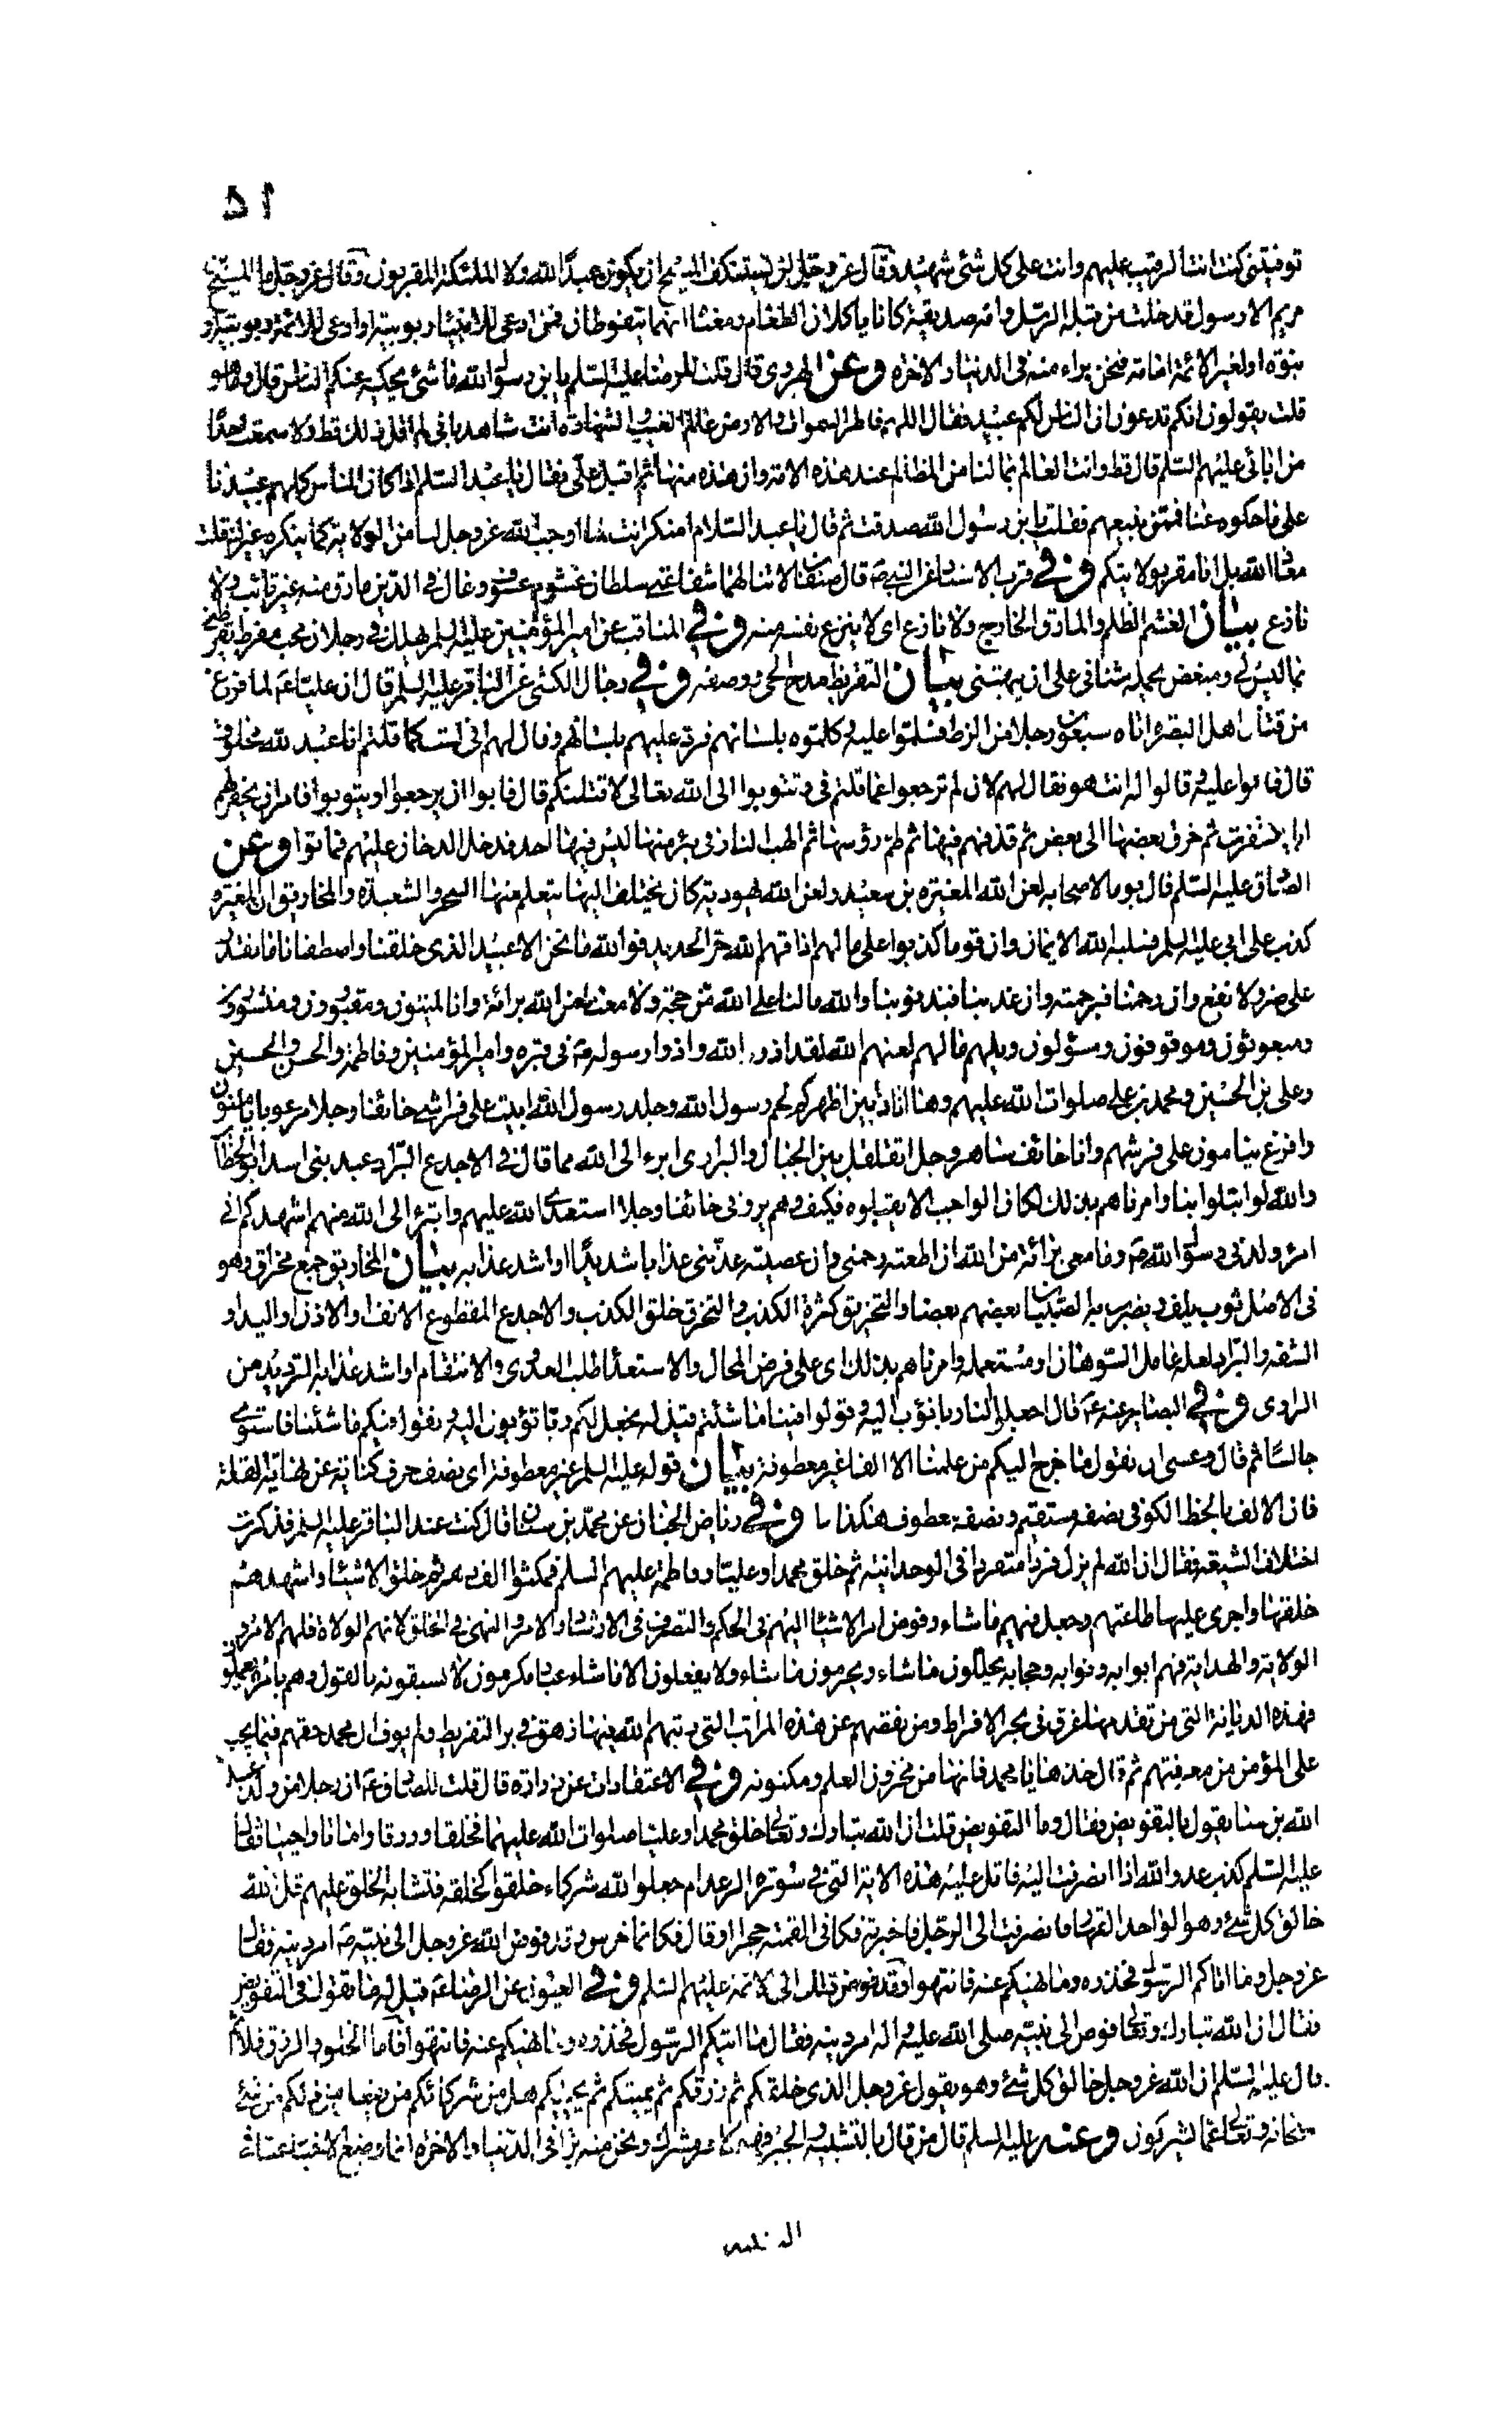 ٥١
توفيتني كنت انت الرقيب عليهم وانت على كل شئ شهيد وقال عز وجل لن يستنكف المسيح ان يكون عبدًا لله ولا الملئكة المقربون وقال عز وجل ما المسيح بن
مريم الا رسول قد خلت من قبله الرسل وامه صديقة كانا ياكلان الطعام ومعناه انهما يتغوطان فمن ادعى للانبياء ربوبية او ادعى للائمة ربوبية او
نبوة او لغير الائمة امامة فنحن براء منه في الدنيا والاخرة وعن الهروي قال قلت للرضا عليه السلم يا بن رسول الله ما شئ يحكيه عنكم الناس قال وما هو
قلت يقولون انكم تدعون ان الناس لكم عبيد فقال اللهم فاطر السموات والارض عالم الغيب والشهادة انت شاهد باني لم اقل ذلك قط ولا سمعت احدًا
من ابائي عليهم السلم قال قط وانت العالم بما لنا من المظالم عند هذه الامة وان هذه منها ثم اقبل علي فقال يا عبد السلم اذا كان الناس كلهم عبيدنا
على ما حكوه عنا فممن نبيعهم فقلت يا بن رسول الله صدقت ثم قال يا عبد السلام امنكر انت لما اوجب الله عز وجل لنا من الولاية كما ينكره غيرك قلت
معاذ الله بل انا مقر بولايتكم وفي قرب الاسناد عن النبي ص قال صنفان لا تنالهما شفاعتي سلطان غشوم عسوف وغال في الدين مارق منه غير تائب ولا
نازع بيان الغشم الظلم والمارق الخارج ولا نازع اى لا ينزع نفسه منه وفي المناقب عن امير المؤمنين عليه السلم يهلك في رجلان محب مفرط يقرظني
بما ليس لي ومبغض يحمله شنآني على ان يبهتني بيان التقريظ مدح الحي ووصفه وفي رجال الكشي عن الباقر عليه السلم قال ان عليا ع لما فرغ
من قتال اهل البصرة اتاه سبعون رجلا من الزط فسلموا عليه وكلموه بلسانهم فرد عليهم بلسانهم وقال لهم اني لست كما قلتم انا عبد لله مخلوق
قال فابوا عليه وقالوا له انت هو فقال لهم لان لم ترجعوا عما قلتم في وتتوبوا الى الله تعالى لاقتلنكم قال فابوا ان يرجعوا او يتوبوا فامر ان يحفر لهم
ابار فحفرت ثم خرق بعضها الى بعض ثم قذفهم فيها ثم طم رؤسها ثم الهب النار في بئر منها ليس فيها احد فدخل الدخان عليهم فماتوا وعن
الصادق عليه السلم قال يوما لاصحابه لعن الله المغيرة بن سعيد ولعن الله يهودية كان يختلف اليها يتعلم منها السحر والشعبذة والمخاريق ان المغيرة
كذب على ابي عليه السلم فسلبه الله الايمان وان قوما كذبوا على ما لهم اذاقهم الله حر الحديد فوالله ما نحن الا عبيد الذي خلقنا واصطفانا ما نقدر
على ضر ولا نفع وان رحمنا فبرحمته وان عذبنا فبذنوبنا والله ما لنا على الله من حجة ولا معنا من الله برائة وانا لميتون ومقبورون ومنشورون
ومبعوثون وموقوفون ومسؤلون ويلهم ما لهم لعنهم الله لقد اذوا الله واذوا رسوله ص في قبره وامير المؤمنين وفاطمة والحسن والحسين
وعلي بن الحسين ومحمد بن علي صلوات الله عليهم وها انا ذا بين اظهركم لحم رسول الله وجلد رسول الله ابيت على فراشي خائفا وجلا مرعوبا يامنون
وافزع ينامون على فرشهم وانا خائف ساهر وجل اتقلقل بين الجبال والبراري ابرء الى الله مما قال في الاجدع البراد عبد بني اسد ابو الخطاب
والله لو ابتلوا بنا وامرناهم بذلك لكان الواجب الا يقبلوه فكيف وهم يروني خائفا وجلا استعدي الله عليهم واتبرء الى الله منهم اشهدكم اني
امرء ولدني رسول الله ص وما معي برائة من الله ان اطعته رحمني وان عصيته عذبني عذابا شديدًا او اشد عذابه بيان المخاريق جمع مخراق وهو
في الاصل ثوب يلف ويضرب به الصبيان بعضهم بعضا والتخريق كثرة الكذب والتخرق خلق الكذب والاجدع المقطوع الانف والاذن واليد او
الشفة والبراد لعله عامل السوهان او مستعمله وامرناهم بذلك اى على فرض المحال والاستعداء طلب العدوى والانتقام او اشد عذابه الترديد من
الراوي وفي البصائر عنه ع قال اجعلوا لنا ربا نؤب اليه وقولوا فينا ما شئتم قيل له نجعل لكم ربا تؤبون اليه ونقول فيكم ما شئنا فاستوى
جالسًا ثم قال وعسى ان نقول ما خرج اليكم من علمنا الا الفا غير معطوفة بيان قوله عليه السلم غير معطوفة اى نصف حرف كناية عن نهاية القلة
فان الالف بالخط الكوفي نصفه مستقيم ونصفه معطوف هكذا ـا وفي رياض الجنان عن محمد بن سنان قال كنت عند الباقر عليه السلم فذكرت
اختلاف الشيعة فقال ان الله لم يزل فردا متفردا في الوحدانية ثم خلق محمدا وعليا وفاطمة عليهم السلم فمكثوا الف دهر ثم خلق الاشياء واشهدهم
خلقها واجرى عليها طاعتهم وجعل فيهم ما شاء وفوض امر الاشياء اليهم في الحكم والتصرف في الارشاد والامر والنهي في الخلق لانهم الولاة فلهم الامر و
الولاية والهداية فهم ابوابه ونوابه وحجابه يحللون ما شاء ويحرمون ما شاء ولا يفعلون الا ما شاء عباد مكرمون لا يسبقونه بالقول وهم بامره يعملون
فهذه الديانة التي من تقدمها غرق في بحر الافراط ومن نقصهم عن هذه المراتب التي رتبهم الله فيها زهق في بر التفريط ولم يوف ال محمد حقهم فيما يجب
على المؤمن من معرفتهم ثم قال خذها يا محمد فانها من مخزون العلم ومكنونه وفي الاعتقادات عن زرارة قال قلت للصادق ع ان رجلا من ولد عبد
الله بن سبا يقول بالتفويض فقال وما التفويض قلت ان الله تبارك وتعالى خلق محمدا وعليا صلوات الله عليهما فخلقا ورزقا واماتا واحييا فقال
عليه السلم كذب عدو الله اذا انصرفت اليه فاتل عليه هذه الاية التي في سورة الرعد ام جعلوا لله شركاء خلقوا كخلقه فتشابه الخلق عليهم قل الله
خالق كل شئ وهو الواحد القهار فانصرفت الى الرجل فاخبرته فكاني القمته حجرا او قال فكانما خرس وقد فوض الله عز وجل الى نبيه ص امر دينه فقال
عز وجل وما اتاكم الرسول فخذوه وما نهيكم عنه فانتهوا وقد فوض ذلك الى الائمة عليهم السلم وفي العيون عن الرضا ع قيل له ما تقول في التفويض
فقال ان الله تبارك وتعالى فوض الى نبيه صلى الله عليه واله امر دينه فقال ما اتيكم الرسول فخذوه وما نهيكم عنه فانتهوا فاما الخلق والرزق فلا ثم
قال عليه السلم ان الله عز وجل خالق كل شئ وهو يقول عز وجل الذي خلقكم ثم رزقكم ثم يميتكم ثم يحييكم هل من شركائكم من يفعل من ذلكم من شئ
سبحانه وتعالى عما يشركون وعنه عليه السلم قال من قال بالتشبيه والجبر فهو كافر مشرك ونحن منه براء في الدنيا والاخرة انما وضع الاخبار عنا في